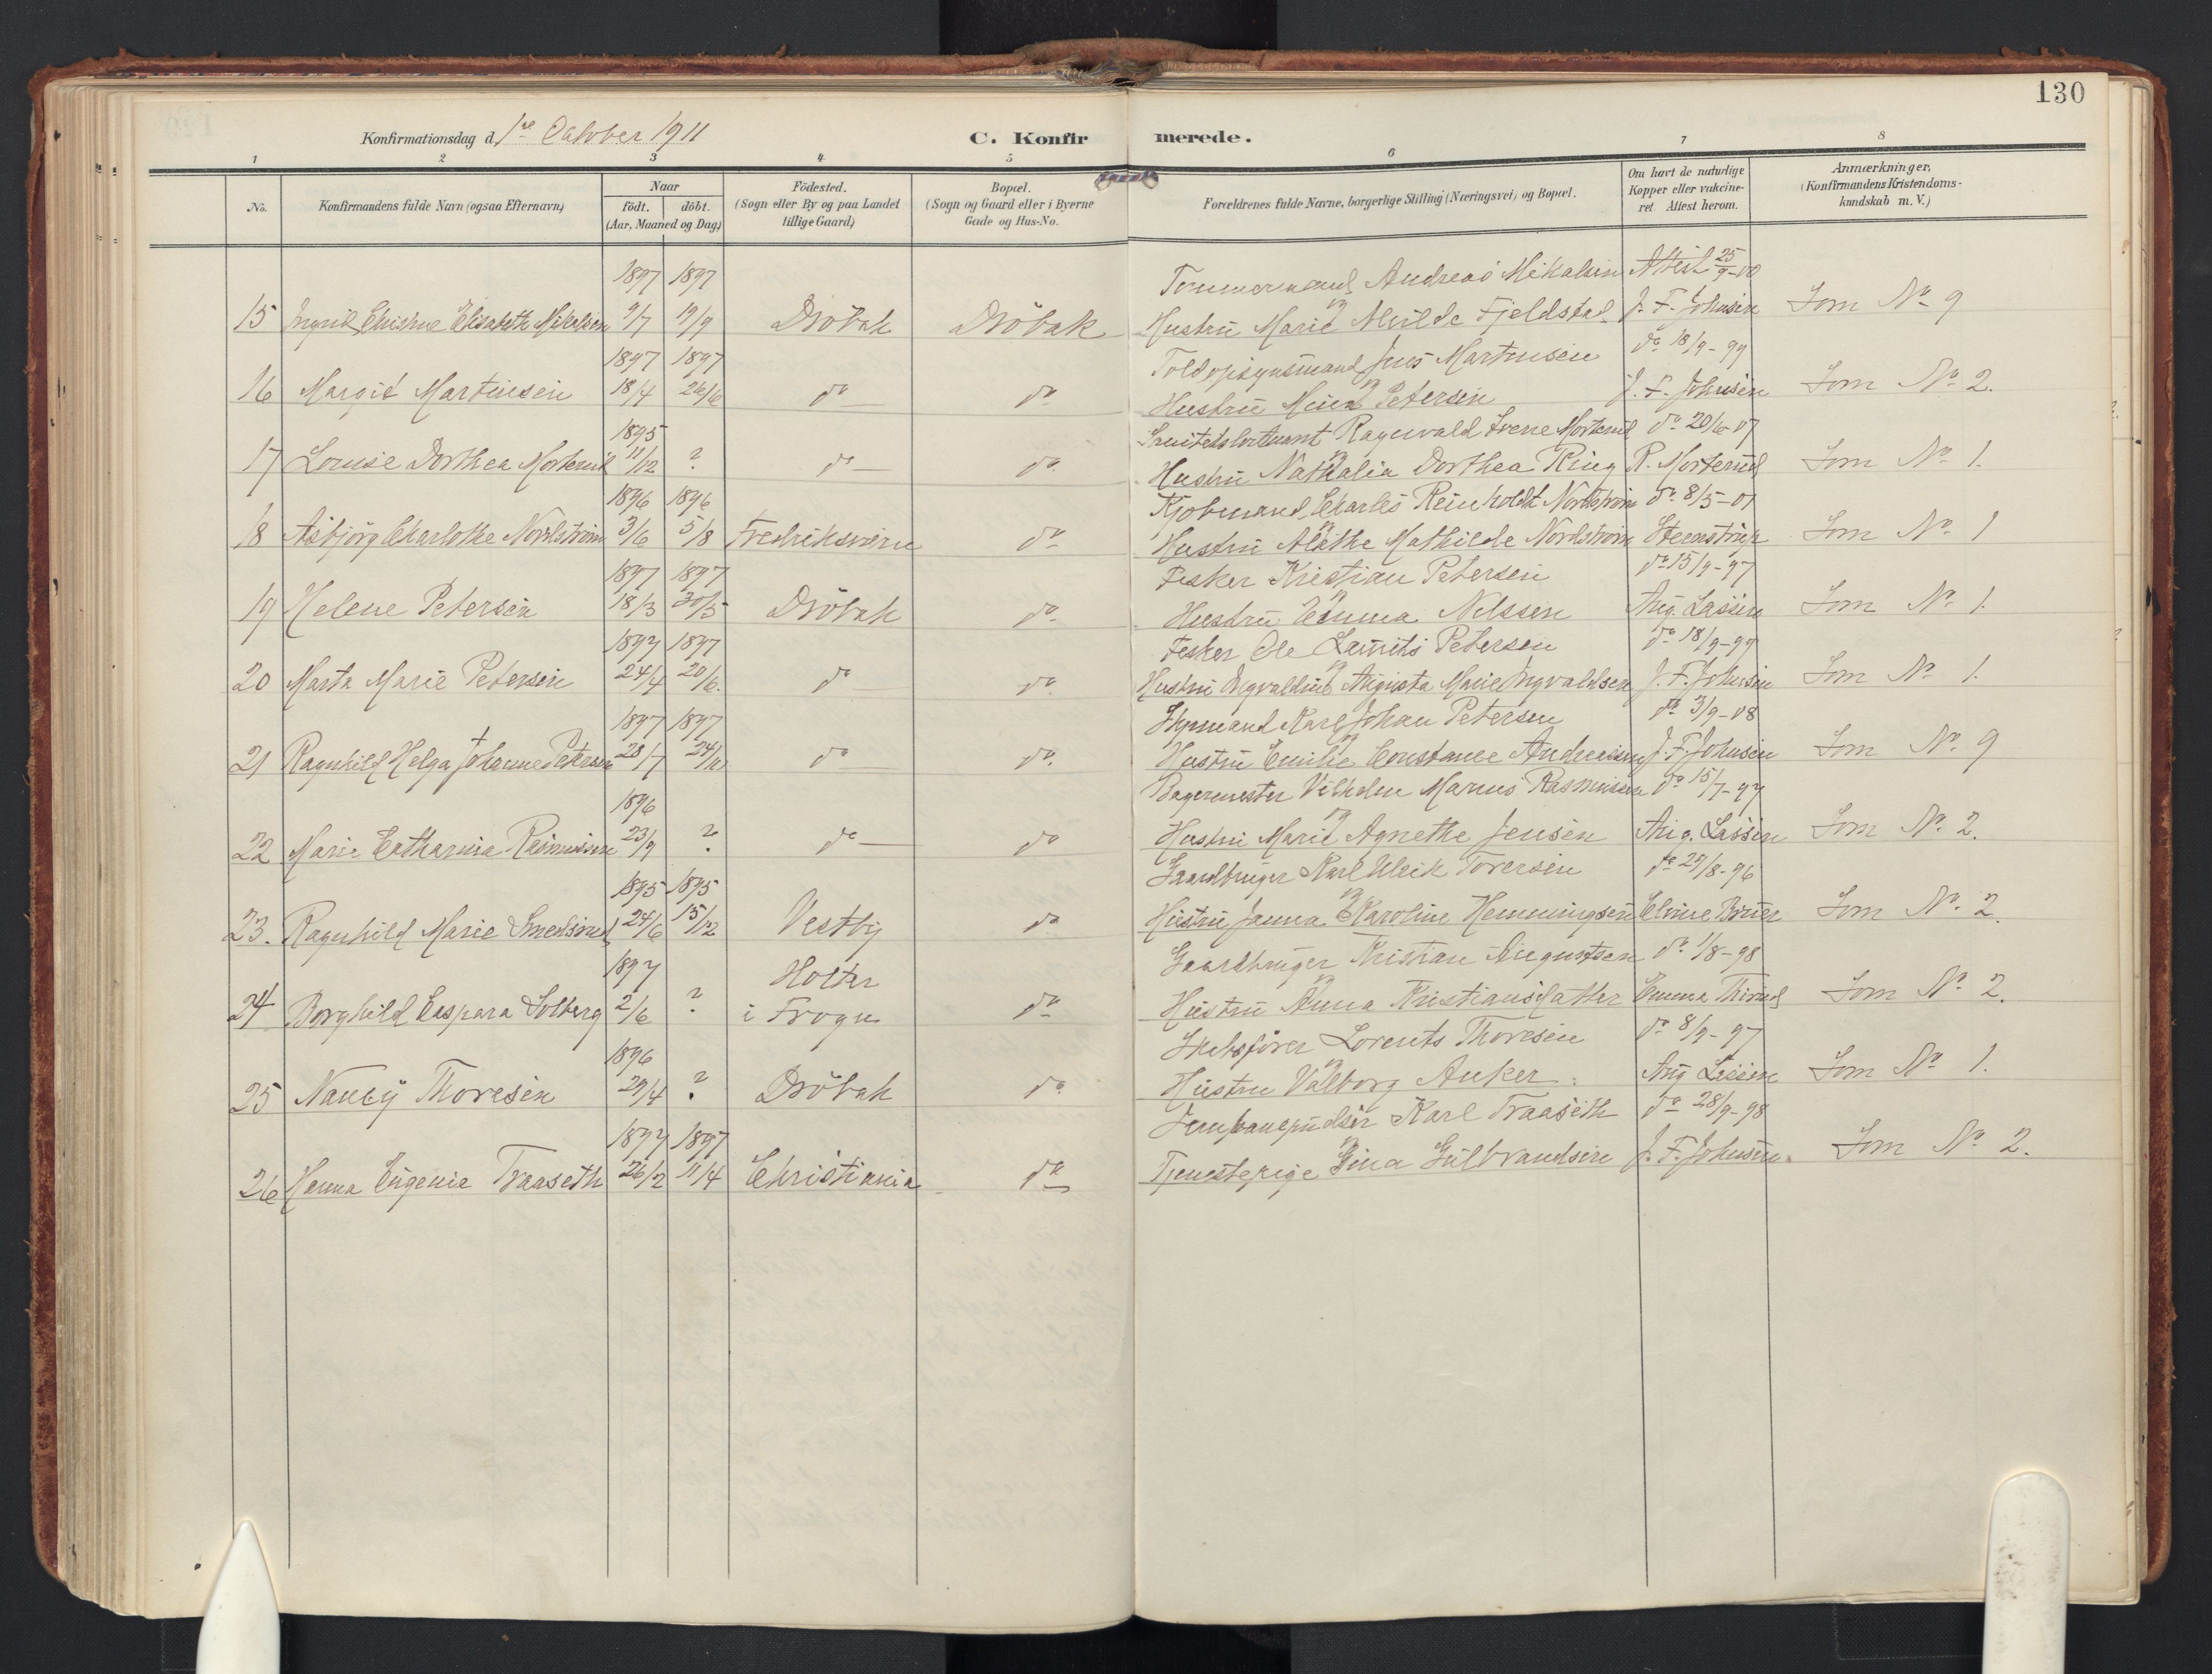 130
Konfirmationsdag d. 1ste October 1911 C. Konfirmerede.
1 2 3 4 5 6 7 8
No. Konfirmandens fulde Navn (ogsaa Efternavn) Naar født. døbt. (Aar, Maaned og Dag) Födested. (Sogn eller By og paa Landet tillige Gaard) Bopæl. (Sogn og Gaard eller i Byerne Gade og Hus-No. Forældrenes fulde Navne, borgerlige Stilling (Næringsvei) og Bopæl. Om havt de naturlige Kopper eller vakcineret Attest herom. Anmærkninger. (Konfirmandens Kristendomskundskab m. V.)
1897 1897 Tømmermand Andreas Mikalsen Attest 25/9-00
15 Ingrid Christine Elisabeth Mikalsen 9/7 19/9 Dröbak Dröbak Hustru Marie Alvilde Fjeldstad J. F. Johnsen Som No 9
1897 1897 Toldopsynsmand Jens Martinsen do 18/9-99
16 Margit Martinsen 18/4 26/6 do do Hustru Mina Petersen J. F. Johnsen Som No 2.
1895 Ragnvald Irene Morterud do 20/6-07
17 Louise Dorthea Morterud 11/12 ? do do Hustru Nathalia Dorthea Ring R. Morterud Som No 1.
1896 1896 Kjøbmand Charles Reinholdt Nordstrøm do 8/5-01
18 Asbjörg Charlotte Nordstrøm 3/6 5/8 Fredriksværn do Hustru Alethe Mathilde Nordstrøm Steenstrup Som No 1
1897 1897 Fisker Kristian Petersen do 15/9-97
19 Helene Petersen 18/3 30/5 Dröbak do Hustru Emma Nilssen Aug. Lassen Som No 1.
1897 1897 Fisker Ole Laurits Petersen do 18/9-99
20 Marta Marie Petersen 24/4 20/6. do do Hustru Ingvaldine Augusta Marie Ingvaldsen J. F. Johnsen Som No 1.
1897 1897 Styrmand Karl Johan Petersen do 3/9-08
21 Ragnhild Helga Johanne Petersen 28/7 24/10 do do. Hustru Emilie Constance Andreasen J. F. Johnsen Som No 9
1896 Bagermester Vilhelm Marius Rasmussen do 15/7-97
22 Marie Catharina Rasmussen 23/9 ? do do Hustru Marie Agnethe Jensen Aug. Lassen Som No 2.
1895 1895 Gaardbruger Karl Ulrik Torersen do 29/8-96
23. Ragnhild Marie Smedsrud 24/6 15/12 Vestby do Hustru Janna Karoline Hemmingsen Elvine Som No 2.
1897 Holter Gaardbruger Kristian Augustsen do 1/8-98
24 Borghild Caspara Solberg 2/6 ? i Frogn do Hustru Anna Kristiansdatter Emma Som No 2.
1896 Skibsfører Lorents Thoresen do 8/9-97
25 Nancy Thoresen 29/4 ? Dröbak do Hustru Valborg Anker. Aug. Lassen Som No 1.
1897 1897 Jernbanepudser Karl Traaseth do 28/9-98
26 Hanna Eugenie Traaseth 26/2 11/4 Christiania do Tjenestepige Gina Gulbrandsen J. F. Johnsen Som No 2.